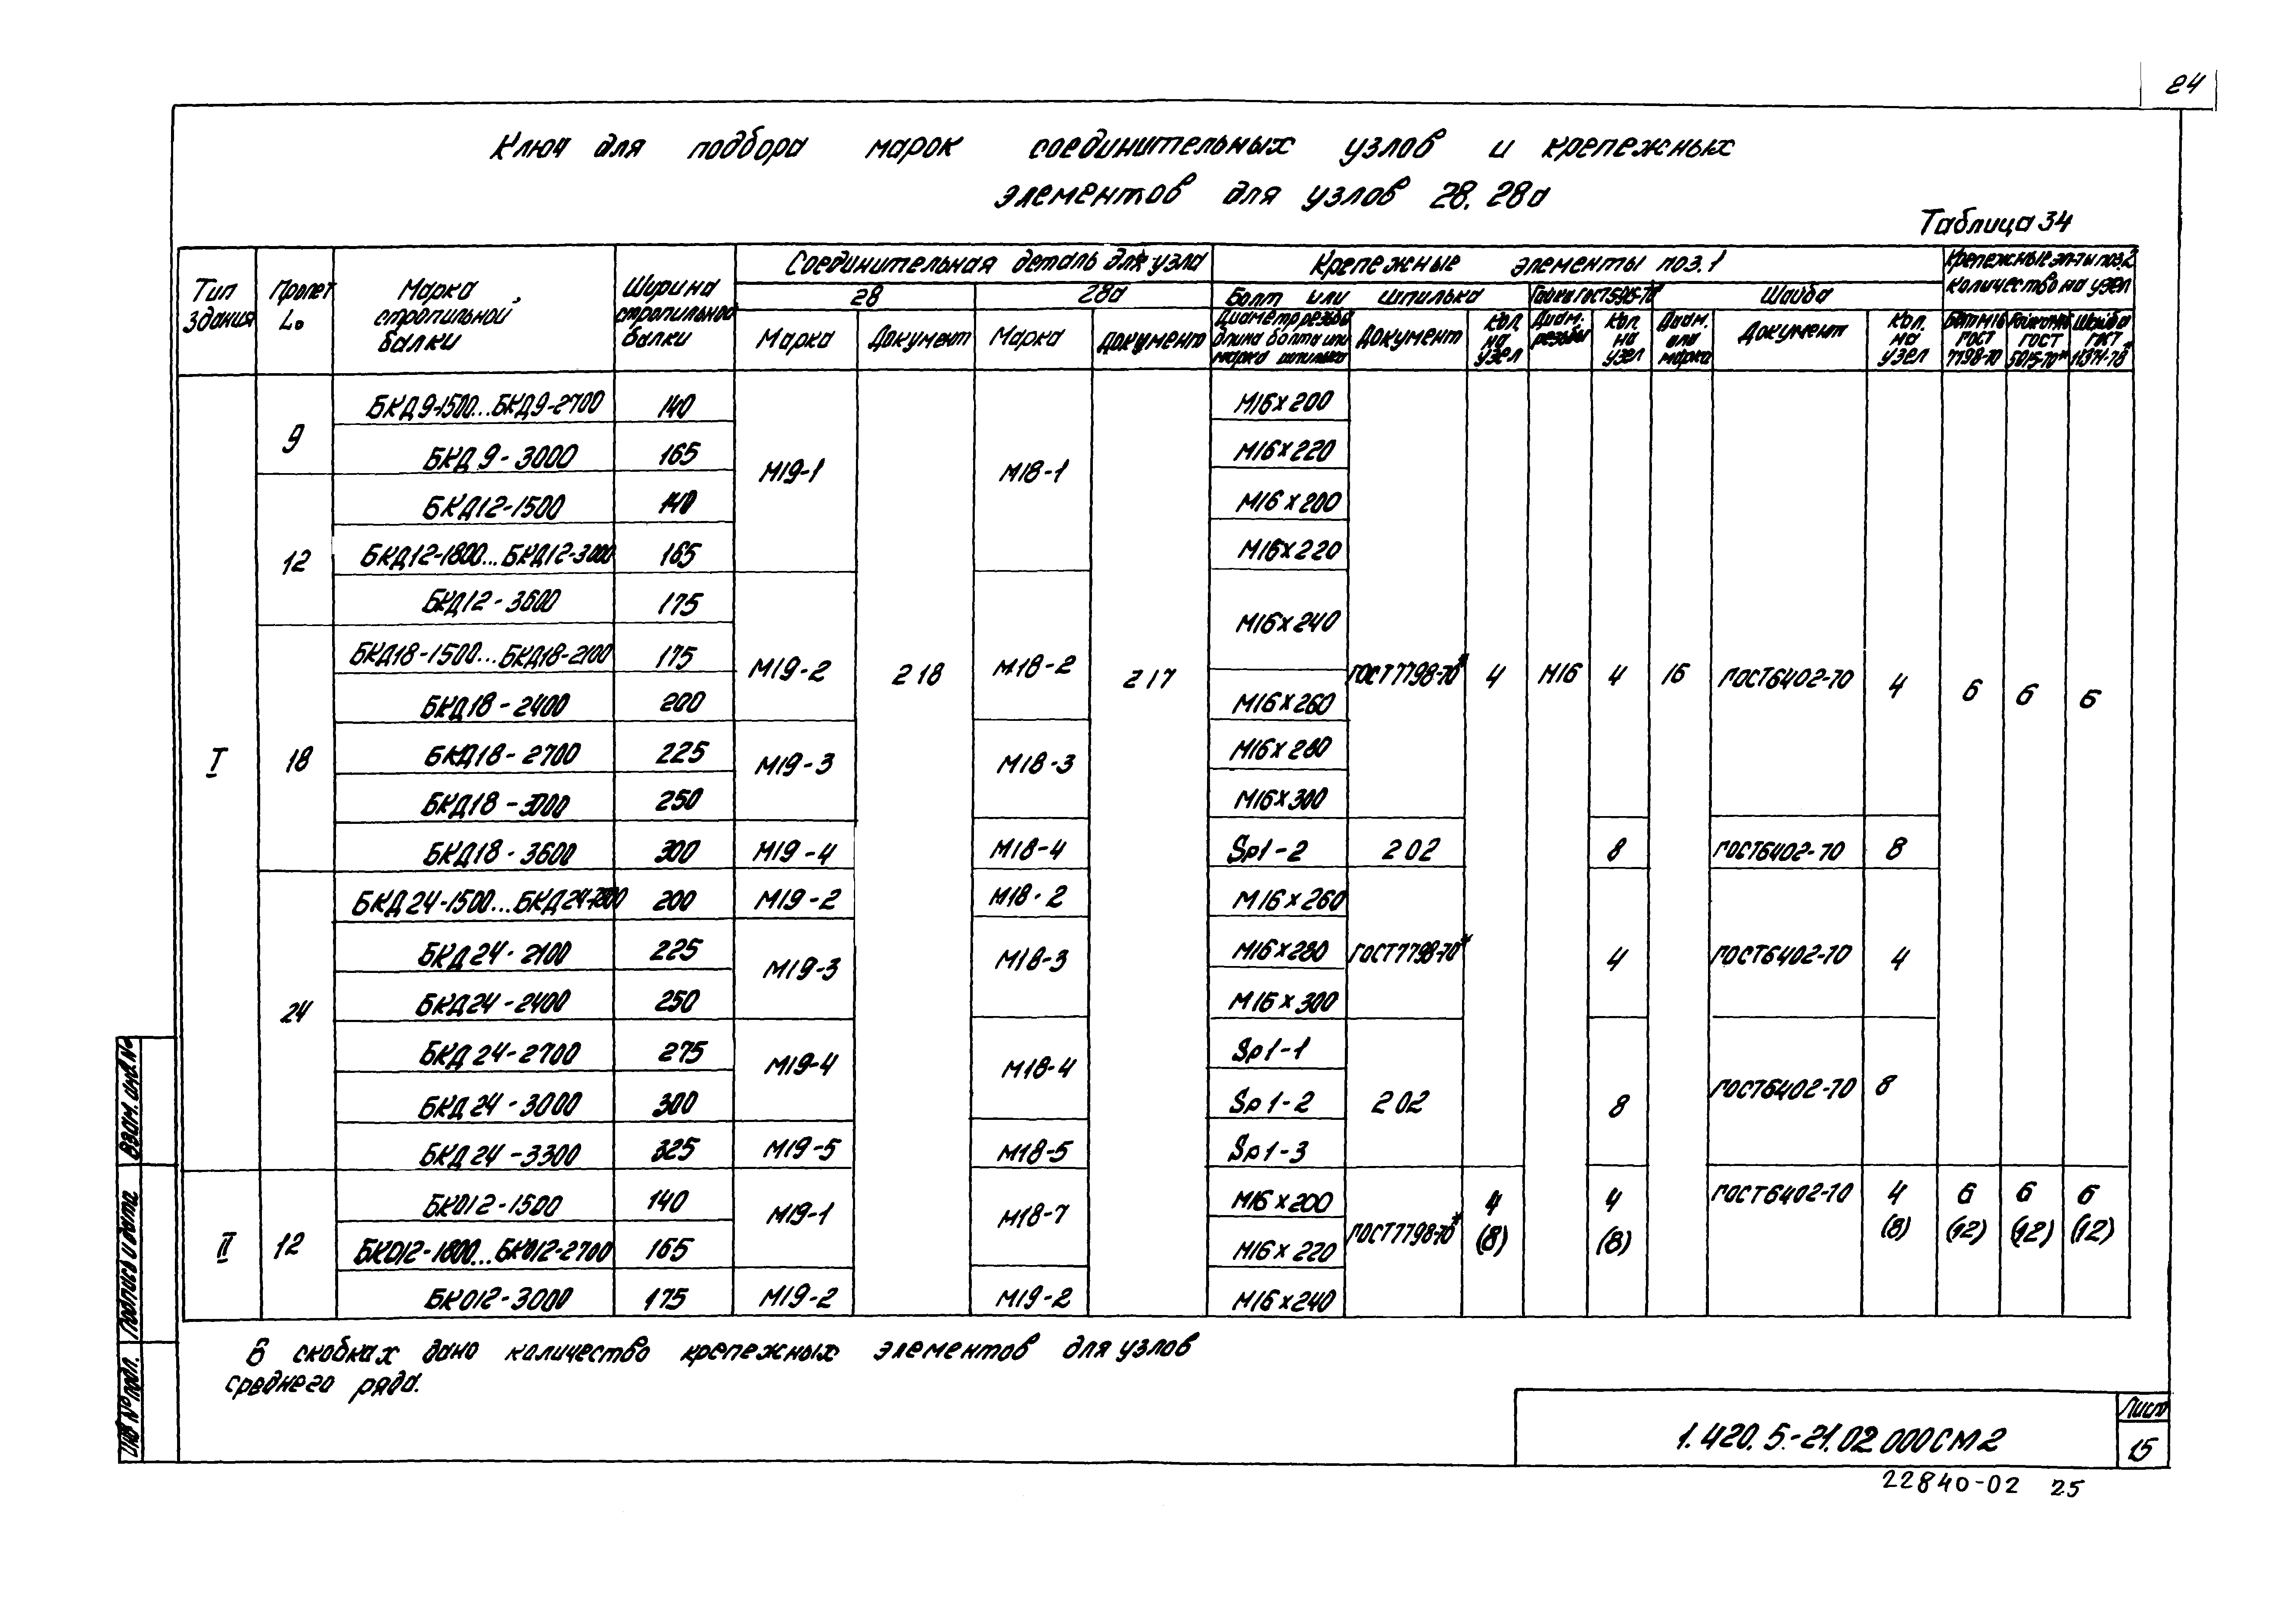 24
Ключ для подбора марок соединительных узлов и крепежных
элементов для узлов 28, 28а
Таблица 34
Тип здания | Пролет L₀ | Марка стропильной балки | Ширина стропильной балки | Соединительная деталь для узла | Крепежные элементы поз. 1 | Крепежные эл-ты поз. 2 количество на узел
28 | 28а | Болт или шпилька | Гайка ГОСТ 5915-70* | Шайба
Марка | Документ | Марка | Документ | Диаметр резьбы длина болта или марка шпильки | Документ | Кол. на узел | Диам. резьбы | Кол. на узел | Диам. или марка | Документ | Кол. на узел | Болт М16 ГОСТ 7798-70 | Гайка М16 ГОСТ 5915-70* | Шайба ГОСТ 11371-78*
I | 9 | БКД9-1500...БКД9-2700 | 140 | М19-1 | 218 | М18-1 | 217 | М16х200 | ГОСТ7798-70* | 4 | М16 | 4 | 16 | ГОСТ6402-70 | 4 | 6 | 6 | 6
БКД9-3000 | 165 | М16х220
12 | БКД12-1500 | 140 | М16х200
БКД12-1800...БКД12-3000 | 165 | М16х220
БКД12-3600 | 175 | М19-2 | М18-2 | М16х240
18 | БКД18-1500...БКД18-2100 | 175
БКД18-2400 | 200 | М16х260
БКД18-2700 | 225 | М19-3 | М18-3 | М16х280
БКД18-3000 | 250 | М16х300
БКД18-3600 | 300 | М19-4 | М18-4 | Sp1-2 | 202 | 8 | ГОСТ6402-70 | 8
24 | БКД24-1500...БКД24-1800 | 200 | М19-2 | М18-2 | М16х260 | ГОСТ7798-70* | 4 | ГОСТ6402-70 | 4
БКД24-2100 | 225 | М19-3 | М18-3 | М16х280
БКД24-2400 | 250 | М16х300
БКД24-2700 | 275 | М19-4 | М18-4 | Sp1-1 | 202 | 8 | ГОСТ6402-70 | 8
БКД24-3000 | 300 | Sp1-2
БКД24-3300 | 325 | М19-5 | М18-5 | Sp1-3
II | 12 | БКО12-1500 | 140 | М19-1 | М18-7 | М16х200 | ГОСТ7798-70* | 4 (8) | 4 (8) | ГОСТ6402-70 | 4 (8) | 6 (12) | 6 (12) | 6 (12)
БКО12-1800...БКО12-2700 | 165 | М16х220
БКО12-3000 | 175 | М19-2 | М19-2 | М16х240
В скобках дано количество крепежных элементов для узлов
среднего ряда.
Взам. инв. №
Подпись и дата
Инв № подл.
1.420.5-21.02 000СМ2
Лист
15
22840-02 25